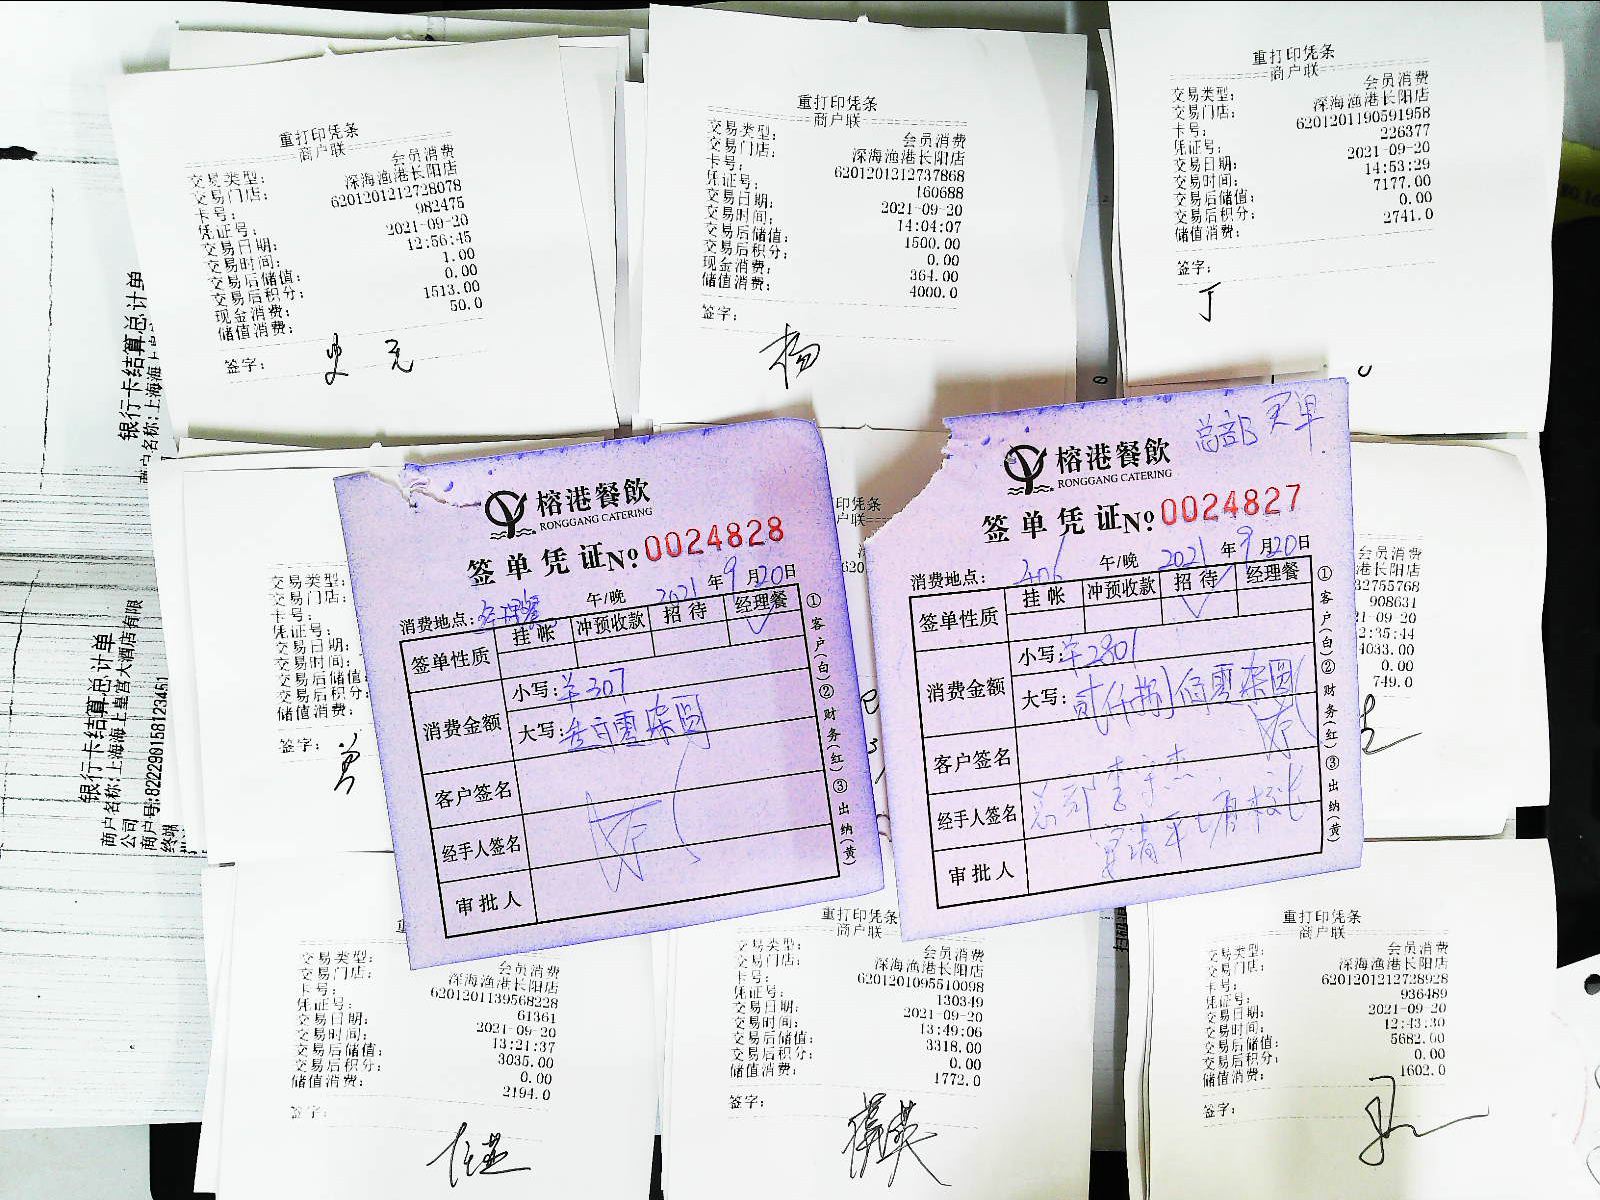 重打印凭条
商户联
交易类型: 会员消费
交易门店: 深海渔港长阳店
卡号: 6201201212728078
凭证号: 982475
交易日期: 2021-09-20
交易时间: 12:56:45
交易后储值: 1.00
交易后积分: 0.00
现金消费: 1513.00
储值消费: 50.0
签字:
重打印凭条
商户联
交易类型: 会员消费
交易门店: 深海渔港长阳店
卡号: 6201201212737868
凭证号: 160688
交易日期: 2021-09-20
交易时间: 14:04:07
交易后储值: 1500.00
交易后积分: 0.00
现金消费: 364.00
储值消费: 4000.0
签字:
杨
重打印凭条
商户联
交易类型: 会员消费
交易门店: 深海渔港长阳店
卡号: 6201201190591958
凭证号: 226377
交易日期: 2021-09-20
交易时间: 14:53:29
交易后储值: 7177.00
交易后积分: 0.00
储值消费: 2741.0
签字:
丁
银行卡结算总计单
商户名称:上海海上
银行卡结算总计单
商户名称:上海海上皇宫大酒店有限
公司
商户号:822290158123451
终端
交易类型:
交易门店:
卡号:
凭证号:
交易日期:
交易时间:
交易后储值:
交易后积分:
储值消费:
签字:
榕港餐飲
RONGGANG CATERING
签单凭证 No 0024828
消费地点: 经理餐 午/晚 2021年9月20日
签单性质 挂帐 冲预收款 招待 经理餐
消费金额 小写:羊307
大写:叁百零柒圆
客户签名
经手人签名
审批人
①客户(白)②财务(红)③出纳(黄)
总部买单
榕港餐飲
RONGGANG CATERING
签单凭证 No 0024827
消费地点: 406 午/晚 2021年9月20日
签单性质 挂帐 冲预收款 招待 经理餐
消费金额 小写:羊2801
大写:贰仟捌佰零壹圆
客户签名
经手人签名
审批人
①客户(白)②财务(红)③出纳(黄)
印凭条
户联
会员消费
港长阳店
32755768
908631
21-09-20
2:35:44
4033.00
0.00
749.0
交易类型: 会员消费
交易门店: 深海渔港长阳店
卡号: 6201201139568228
凭证号: 61361
交易日期: 2021-09-20
交易时间: 13:21:37
交易后储值: 3035.00
交易后积分: 0.00
储值消费: 2194.0
签字:
重打印凭条
商户联
交易类型: 会员消费
交易门店: 深海渔港长阳店
卡号: 6201201095510098
凭证号: 130349
交易日期: 2021-09-20
交易时间: 13:49:06
交易后储值: 3318.00
交易后积分: 0.00
储值消费: 1772.0
签字:
重打印凭条
商户联
交易类型: 会员消费
交易门店: 深海渔港长阳店
卡号: 6201201212728928
凭证号: 936489
交易日期: 2021-09-20
交易时间: 12:43:30
交易后储值: 5682.00
交易后积分: 0.00
储值消费: 1602.0
签字: